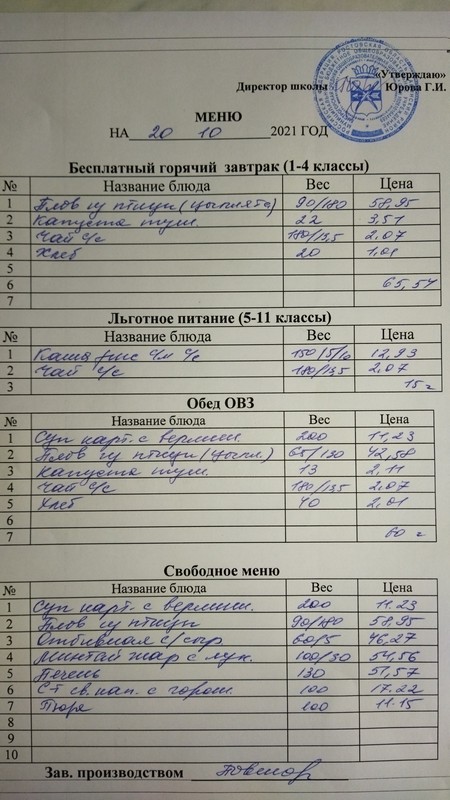 «Утверждаю»
Директор школы Юрова Г.И.
МЕНЮ
НА 20 10 2021 ГОД
Бесплатный горячий завтрак (1-4 классы)
№ Название блюда Вес Цена
1 Плов из птицы (цыплята) 90/180 58,95
2 Капуста туш. 22 3,51
3 Чай с/с 180/13,5 2,07
4 Хлеб 20 1,01
5
6 65,54
7
Льготное питание (5-11 классы)
№ Название блюда Вес Цена
1 Каша рис с/м с/с 150/5/10 12,93
2 Чай с/с 180/13,5 2,07
3 15=
Обед ОВЗ
№ Название блюда Вес Цена
1 Суп карт. с вермиш. 200 11,23
2 Плов из птицы (цыпл.) 65/130 42,58
3 Капуста туш. 13 2,11
4 Чай с/с 180/13,5 2,07
5 Хлеб 40 2,01
6
7 60=
Свободное меню
№ Название блюда Вес Цена
1 Суп карт. с вермиш. 200 11.23
2 Плов из птицы 90/180 58,95
3 Отбивная с/сыр 60/5 46.27
4 Минтай жар с лук. 100/30 54,56
5 Печень 130 51,57
6 Ст св. кап. с горош. 100 17.22
7 Пюре 100 11.15
8
9
10
Зав. производством